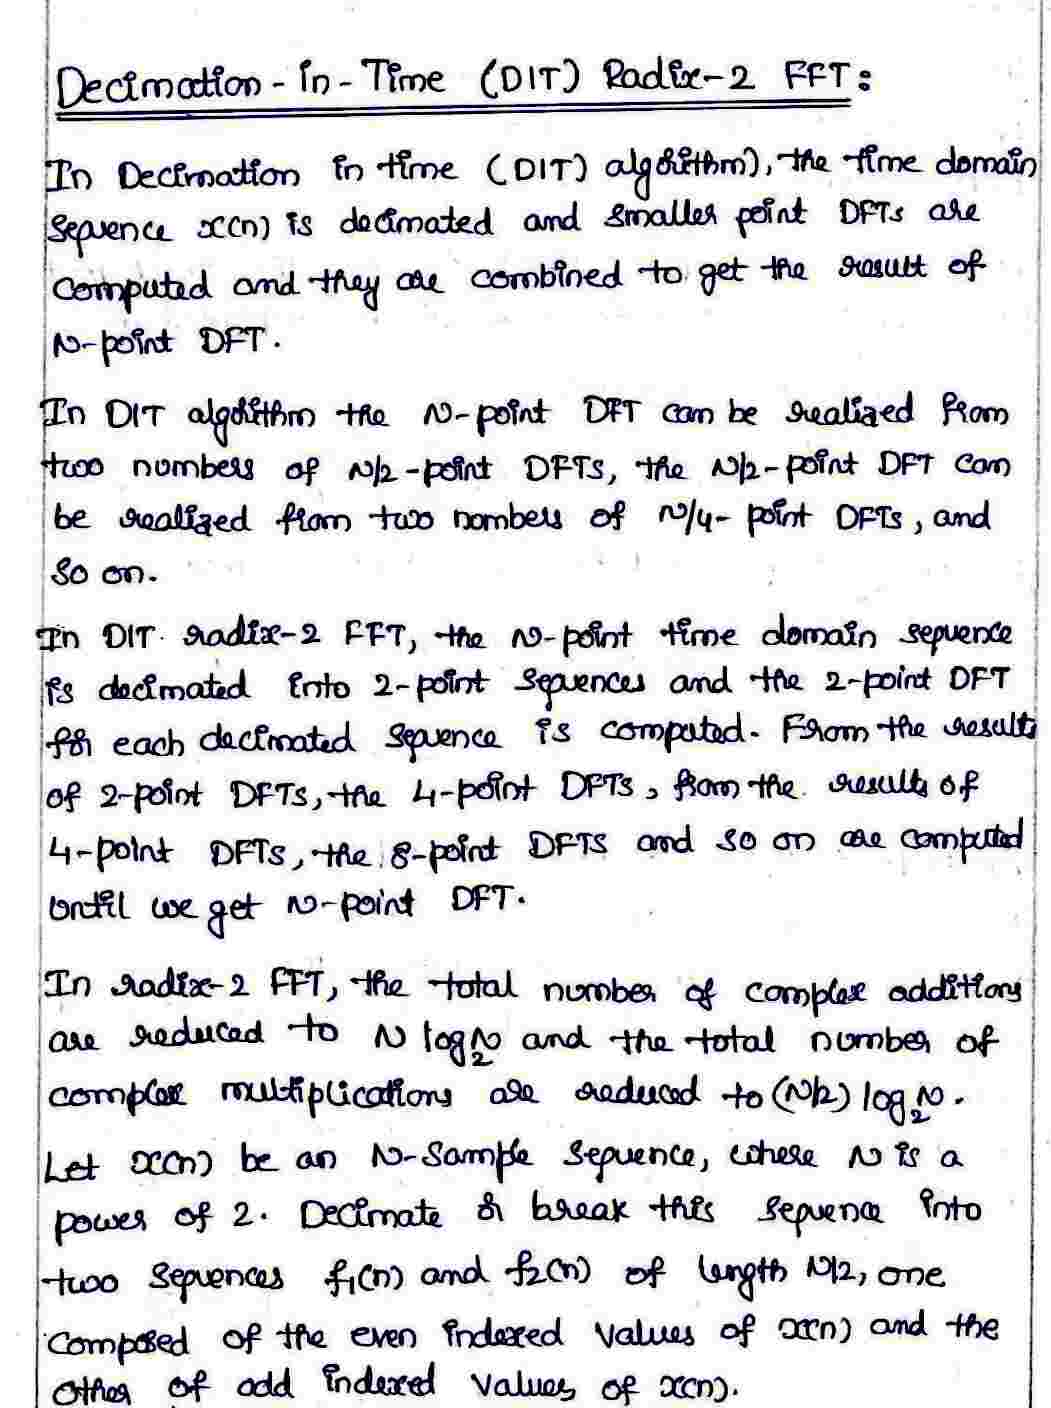 Decimation-in-Time (DIT) Radix-2 FFT:
In Decimation in time (DIT) algorithm), the time domain
sequence x(n) is decimated and smaller point DFTs are
computed and they are combined to get the result of
N-point DFT.
In DIT algorithm the N-point DFT can be realized from
two numbers of N/2-point DFTs, the N/2-point DFT can
be realized from two numbers of N/4-point DFTs, and
so on.
In DIT radix-2 FFT, the N-point time domain sequence
is decimated into 2-point sequences and the 2-point DFT
for each decimated sequence is computed. From the results
of 2-point DFTs, the 4-point DFTs, from the results of
4-point DFTs, the 8-point DFTs and so on are computed
until we get N-point DFT.
In radix-2 FFT, the total number of complex additions
are reduced to N log₂N and the total number of
complex multiplications are reduced to (N/2) log₂N.
Let x(n) be an N-sample sequence, where N is a
power of 2. Decimate or break this sequence into
two sequences f₁(n) and f₂(n) of length N/2, one
composed of the even indexed values of x(n) and the
other of odd indexed values of x(n).